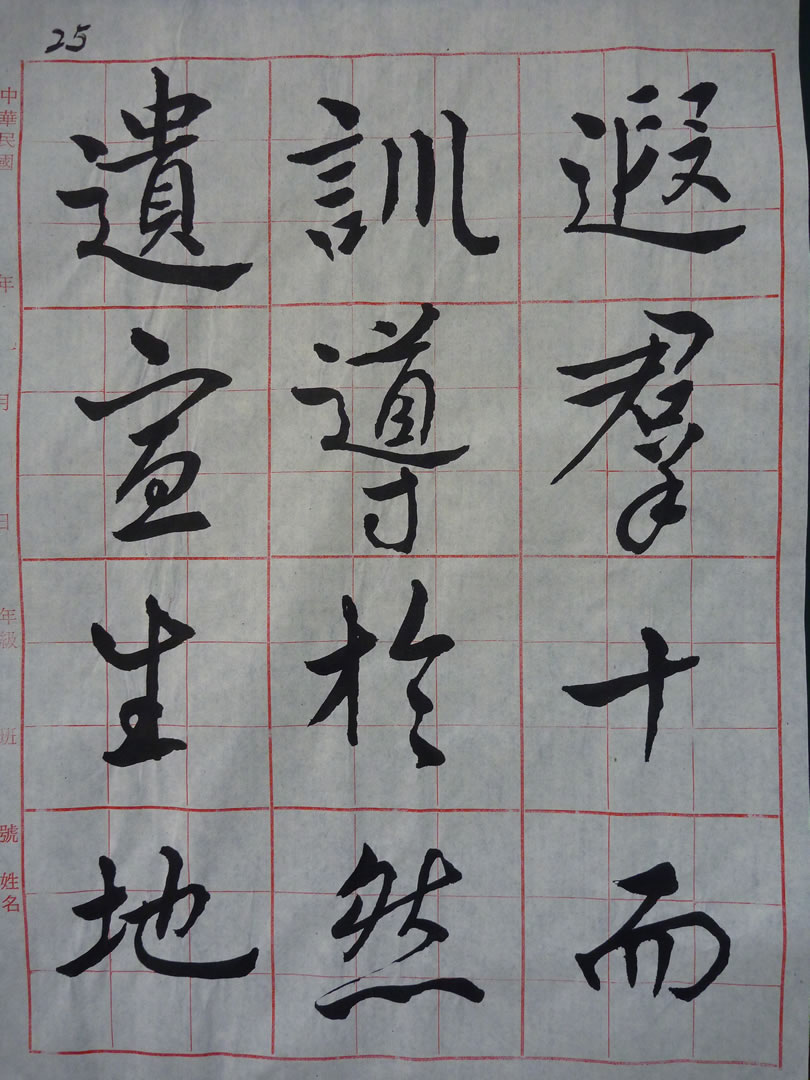 25
遺訓遐
宣導羣
生於十
地然而
中華民國 年 月 日 年級 班 號 姓名